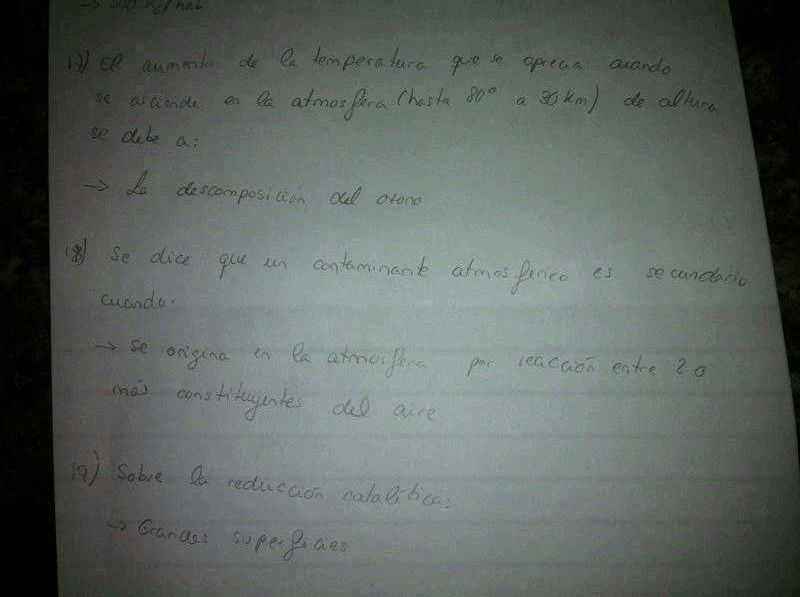 → 300 kg/hab.
17) El aumento de la temperatura que se aprecia cuando
se asciende en la atmosfera (hasta 80° a 36 km) de altura
se debe a:
→ La descomposición del ozono
18) Se dice que un contaminante atmosferico es secundario
cuando:
→ se origina en la atmósfera por reacción entre 2 o
más constituyentes del aire
19) Sobre la reducción catalítica:
→ Grandes superficies